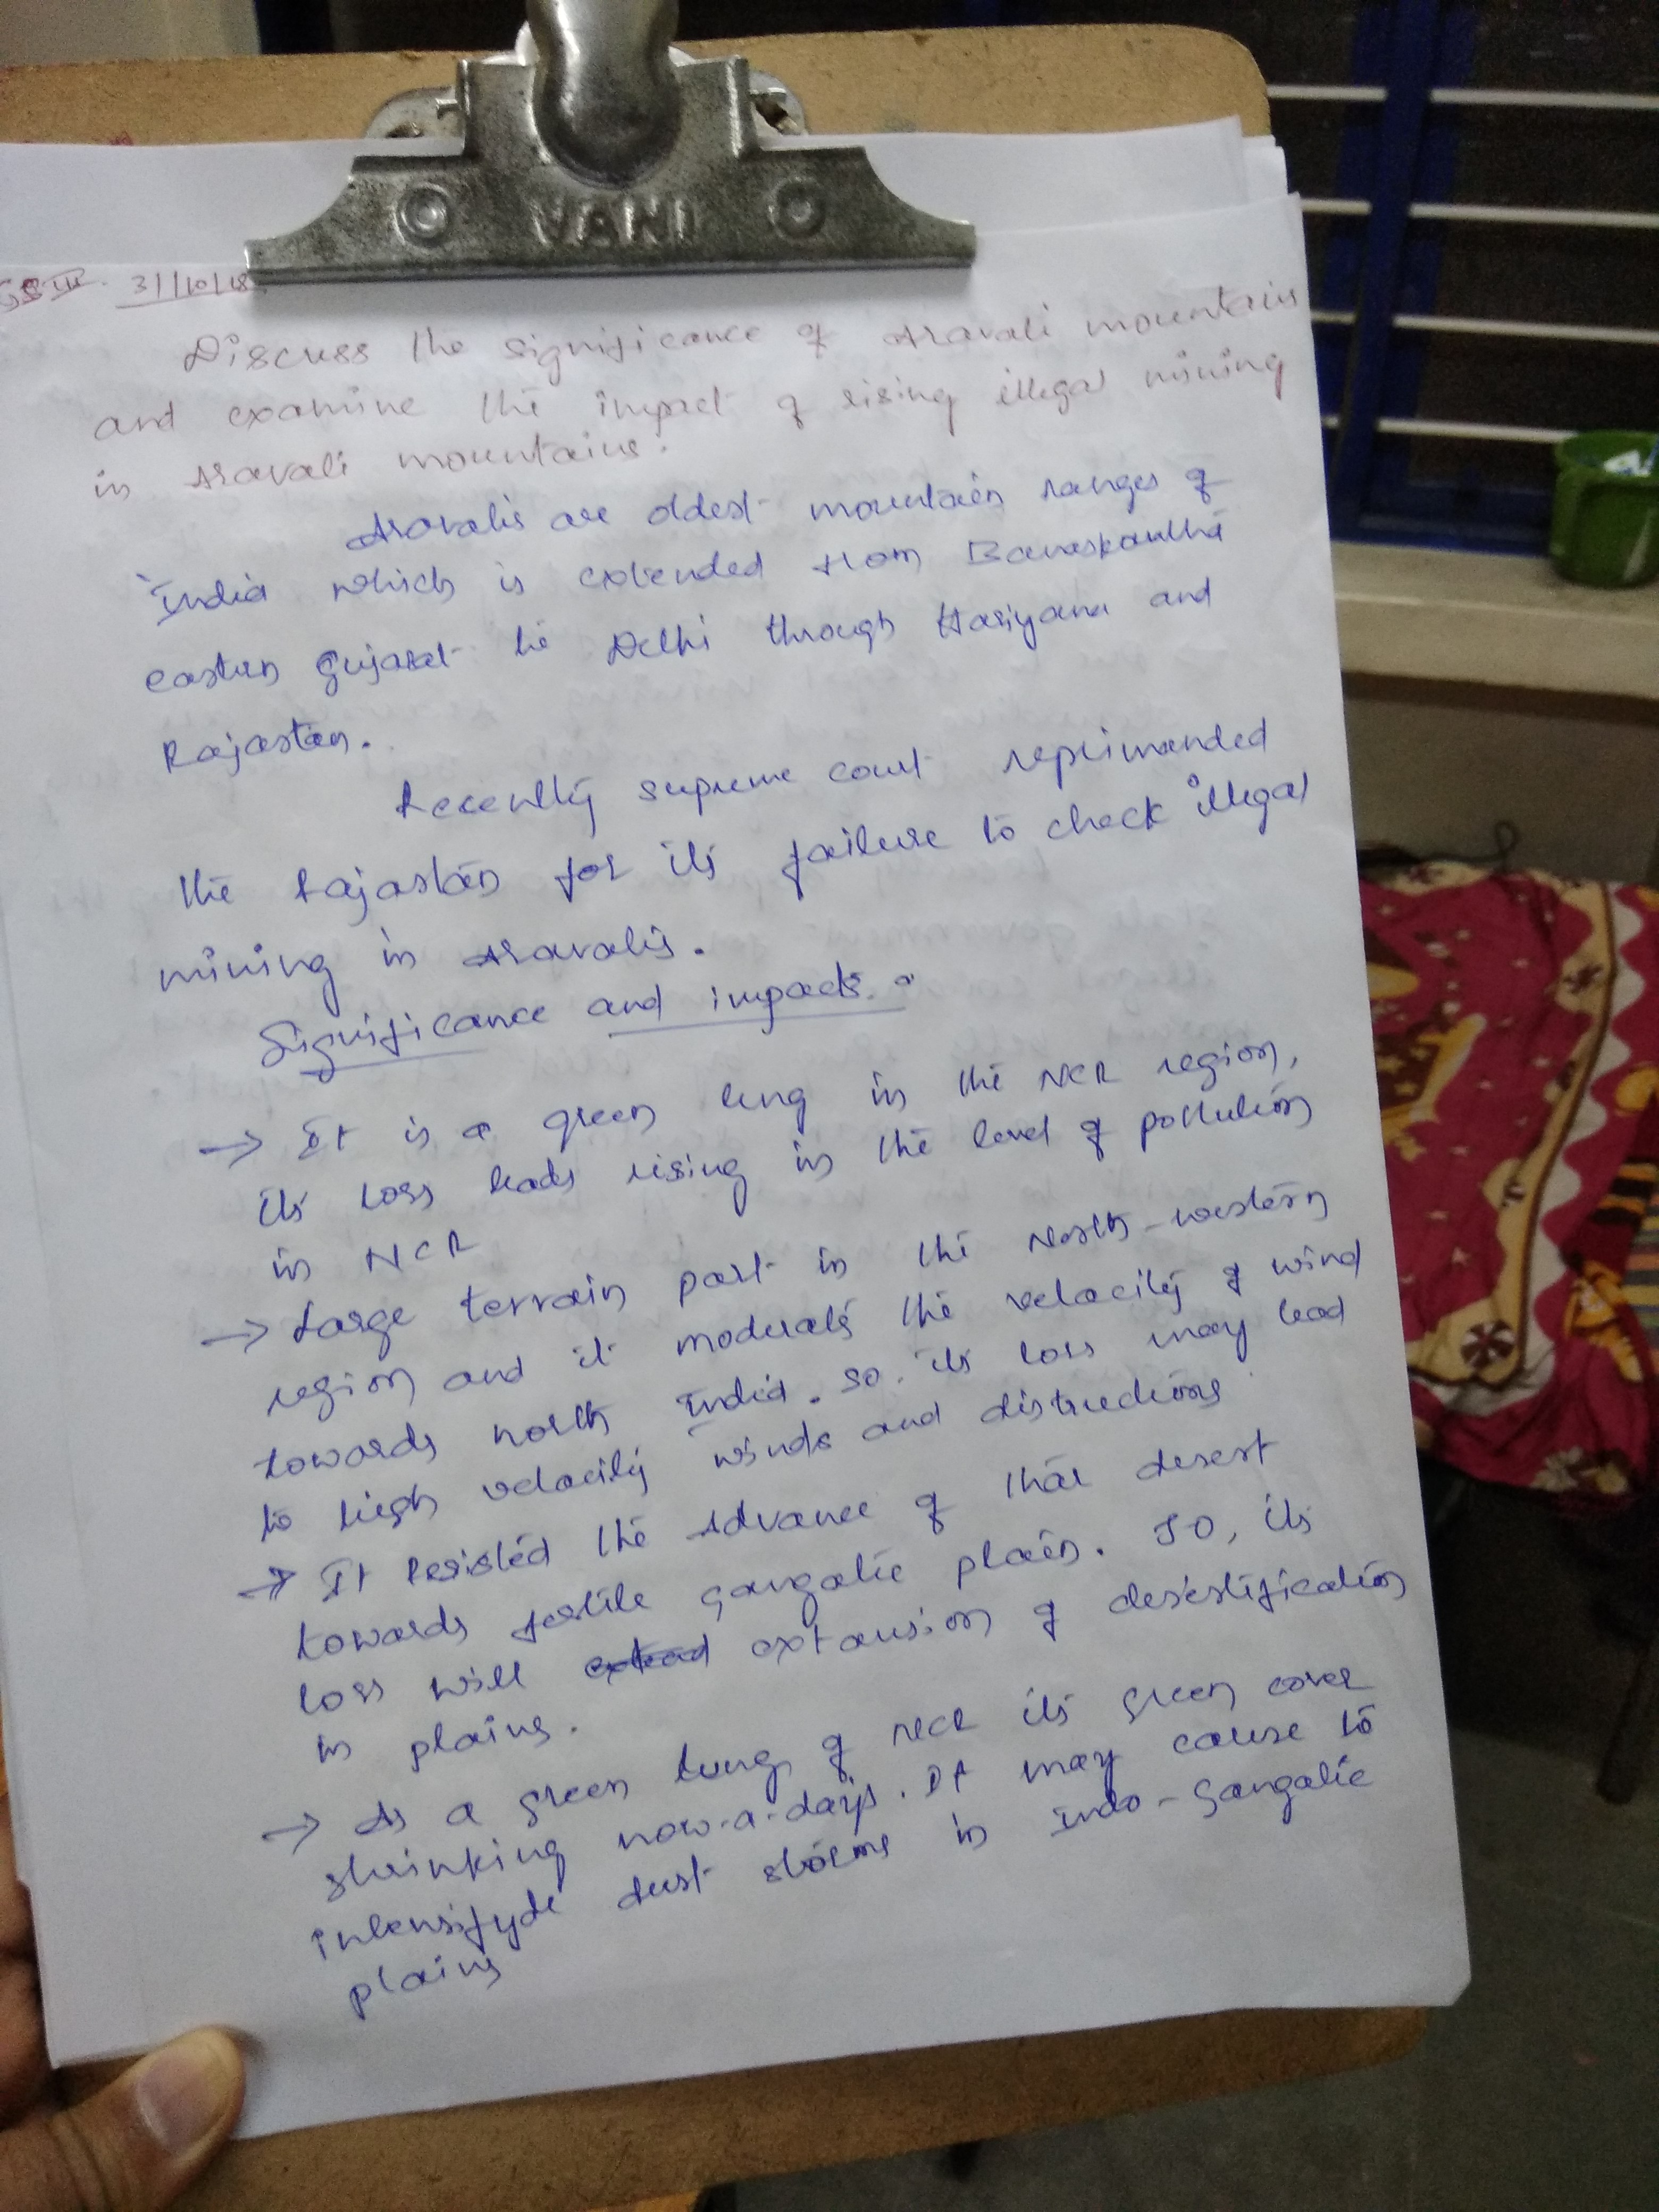 VANI
GS-III. 31/10/18.
Discuss the significance of Aravali mountains
and examine the impact of rising illegal mining
in Aravali mountains.
Aravalis are oldest mountain ranges of
India which is extended from Banaskantha
eastern Gujarat to Delhi through Hariyana and
Rajastan.
Recently supreme court reprimanded
the Rajastan for its failure to check illegal
mining in Aravalis.
Significance and impacts.
→ It is a green lung in the NCR region,
its loss leads rising in the level of pollution
in NCR
→ Large terrain part in the North-western
region and it moderate the velocity of wind
towards north India. so. its loss may lead
to high velocity winds and distructions
→ It Resisted the Advance of thar desert
towards fertile gangatic plain. SO, its
loss will extansion of desertification
in plains.
→ As a green lung of NCR its green cover
shrinking now-a-days. It may cause to
intensifyde dust storms in Indo-Gangatic
plains